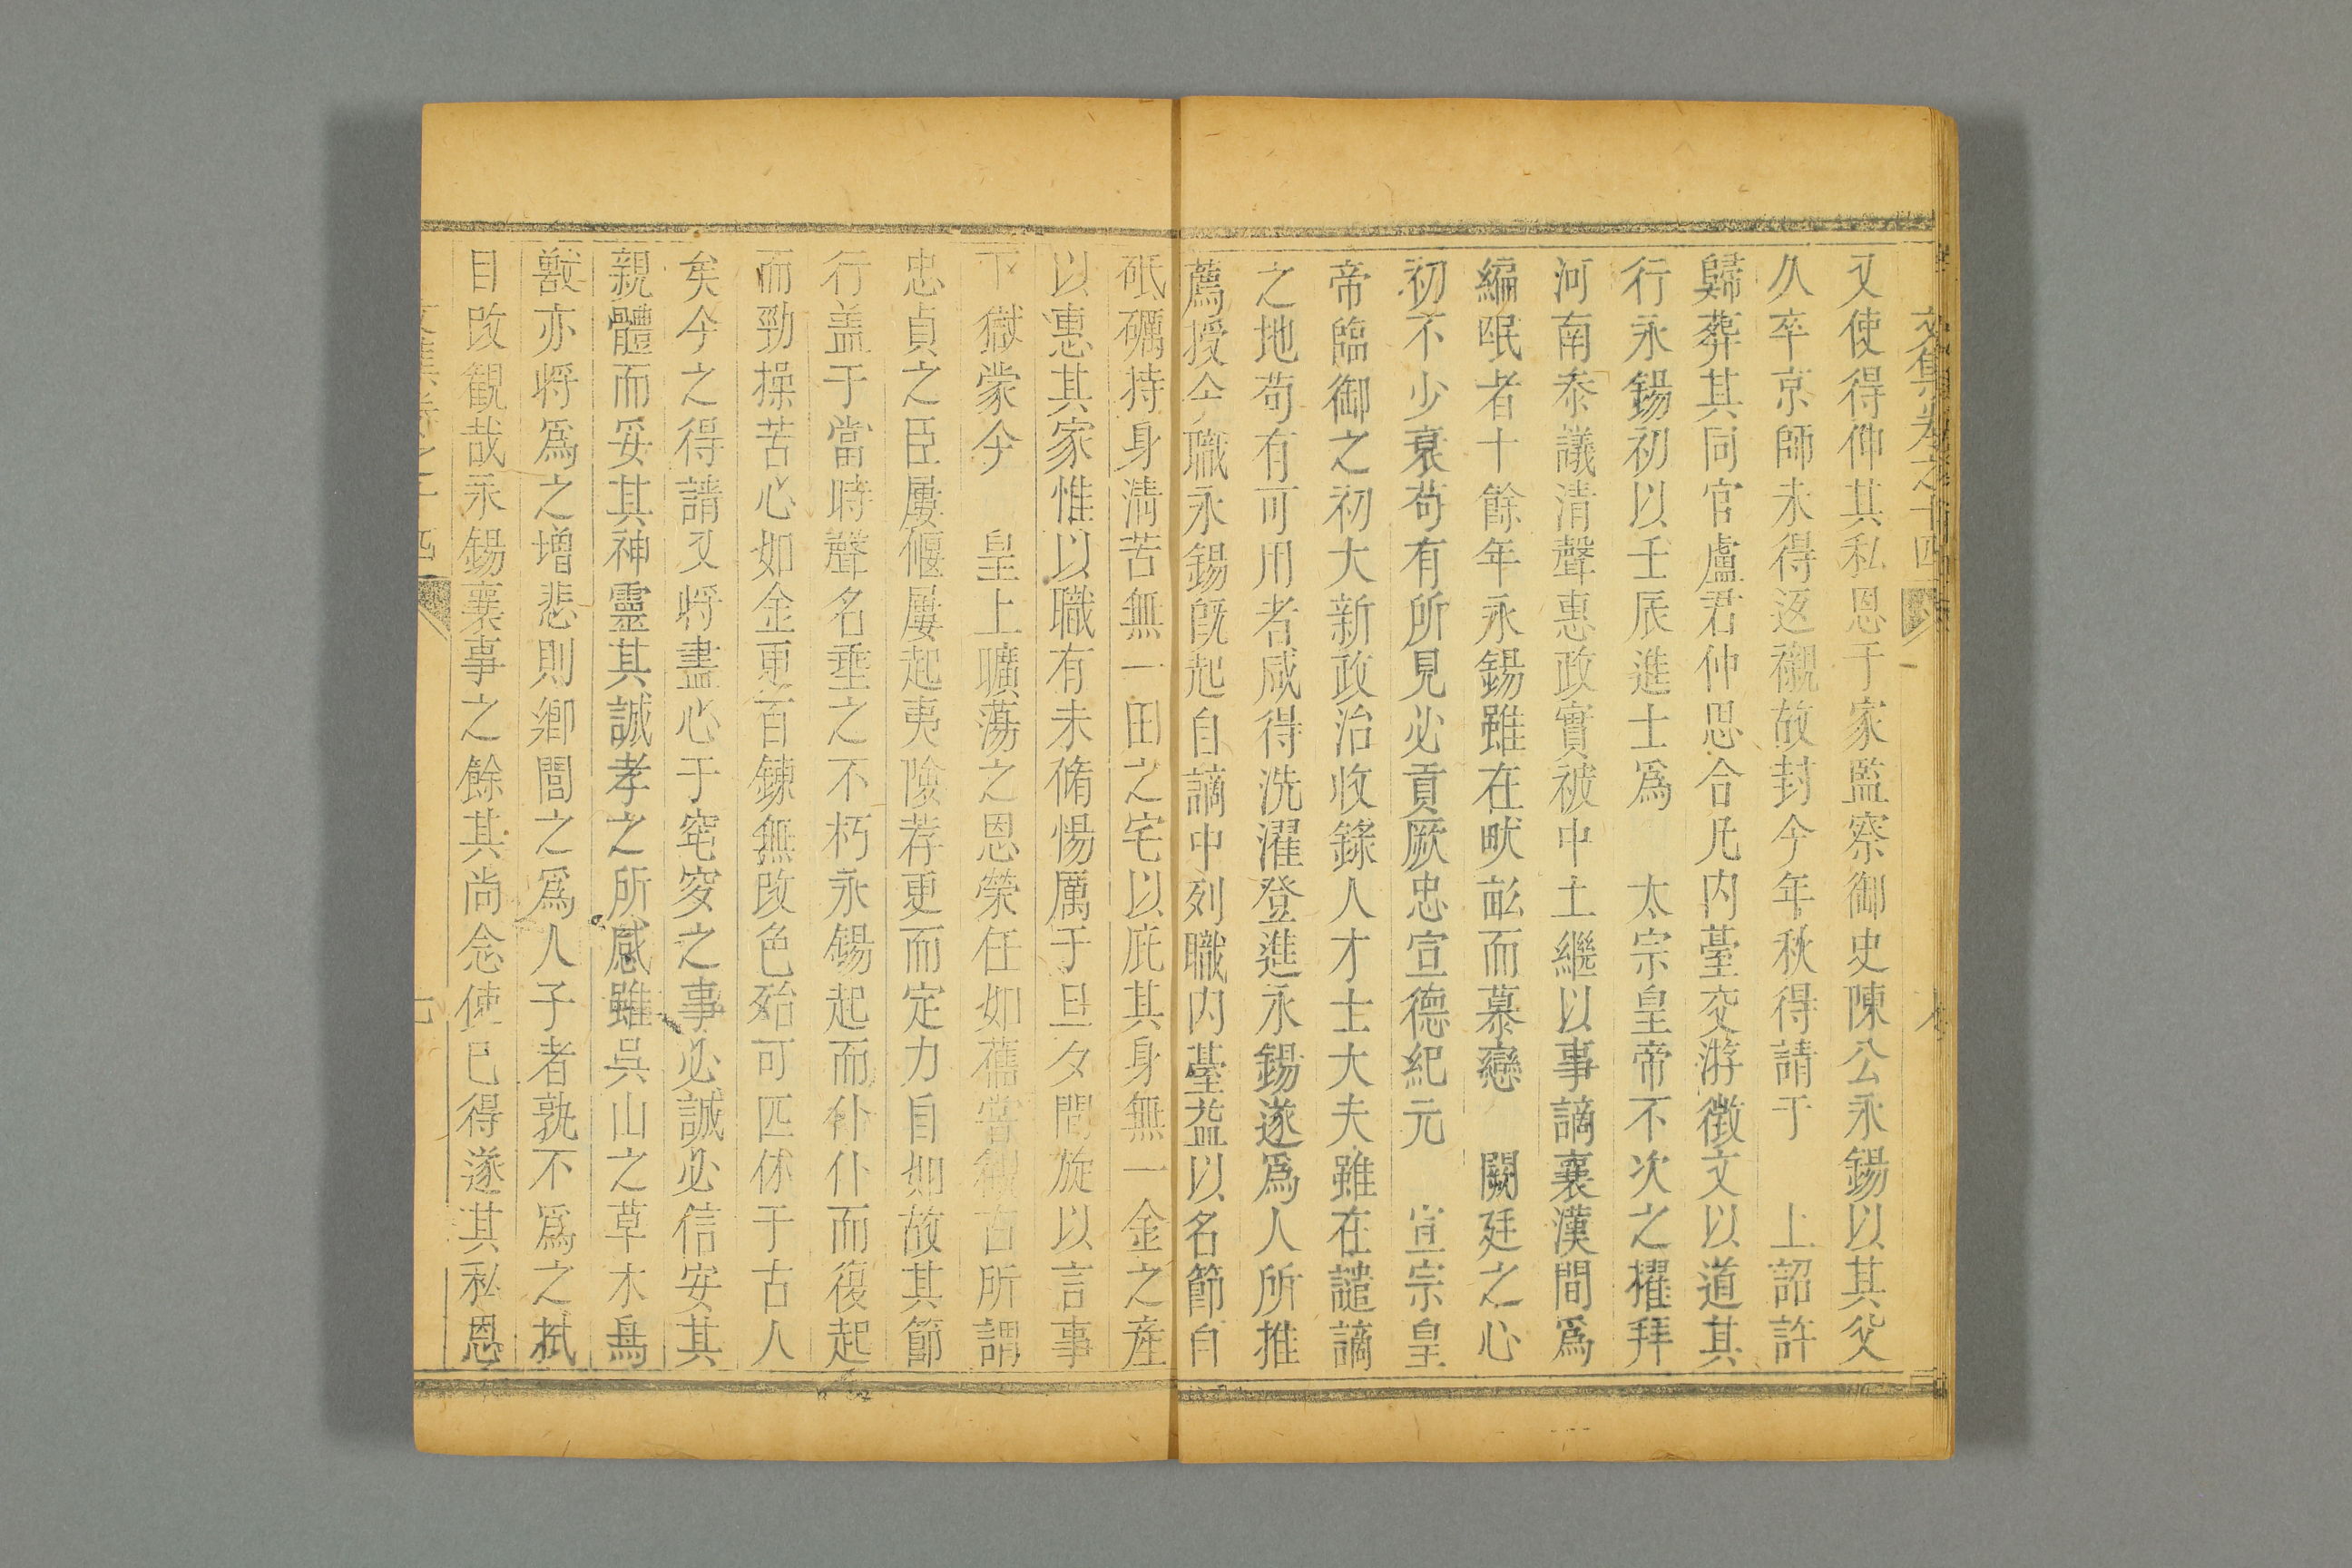 文集卷之十四
又使得仲其私恩于家監察御史陳公永錫以其父
久卒京師未得返櫬故封今年秋得請于　上詔許
歸葬其同官盧君仲思合凡内臺交游徵文以道其
行永錫初以壬辰進士爲　太宗皇帝不次之擢拜
河南叅議清聲惠政實被中土繼以事謫襄漢間爲
編氓者十餘年永錫雖在畎畝而慕戀　闕廷之心
初不少衰苟有所見必貢厥忠宣德紀元　宣宗皇
帝臨御之初大新政治收錄人才士大夫雖在譴謫
之地苟有可用者咸得洗濯登進永錫遂爲人所推
薦授今職永錫旣起自謫中列職内臺益以名節自
砥礪持身清苦無一田之宅以庇其身無一金之産
以惠其家惟以職有未脩惕厲于旦夕間旋以言事
下獄蒙今　皇上曠蕩之恩榮任如舊嘗觀古所謂
忠貞之臣屢偃屢起夷險荐更而定力自如故其節
行盖于當時聲名垂之不朽永錫起而仆仆而復起
而勁操苦心如金更百鍊無改色殆可匹休于古人
矣今之得請又將盡心于窀穸之事必誠必信安其
親體而妥其神靈其誠孝之所感雖呉山之草木鳥
獸亦將爲之增悲則鄉閭之爲人子者孰不爲之拭
目改觀哉永錫襄事之餘其尚念使已得遂其私恩
文集卷之十四　七